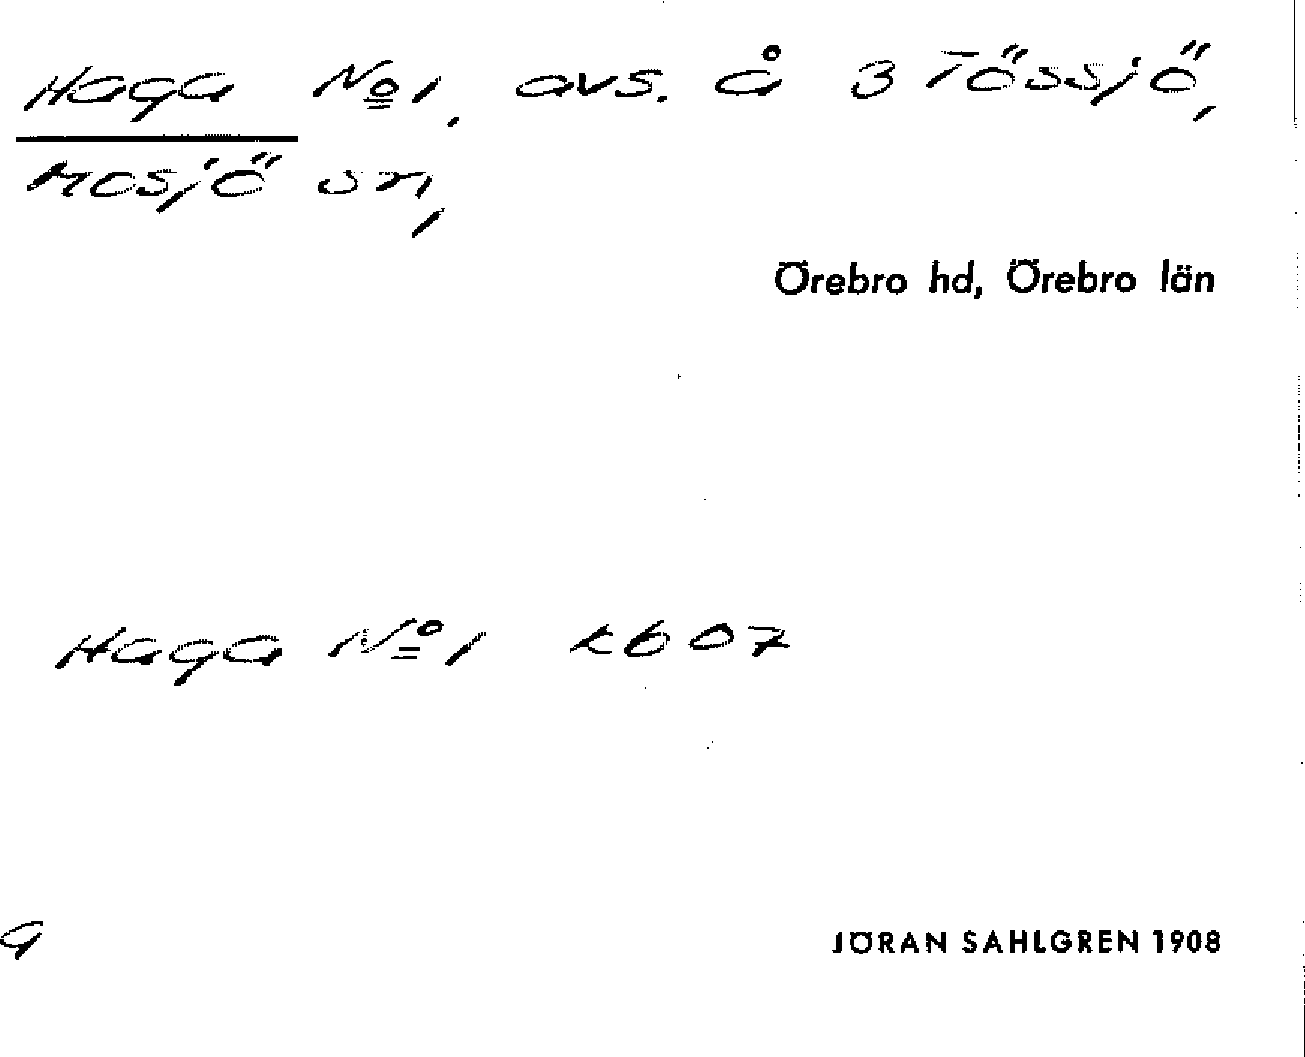 Haga No 1, avs. å 3 Tössjö,
Mosjö sn,
Örebro hd, Örebro län
Haga No 1 kb 07
JÖRAN SAHLGREN 1908